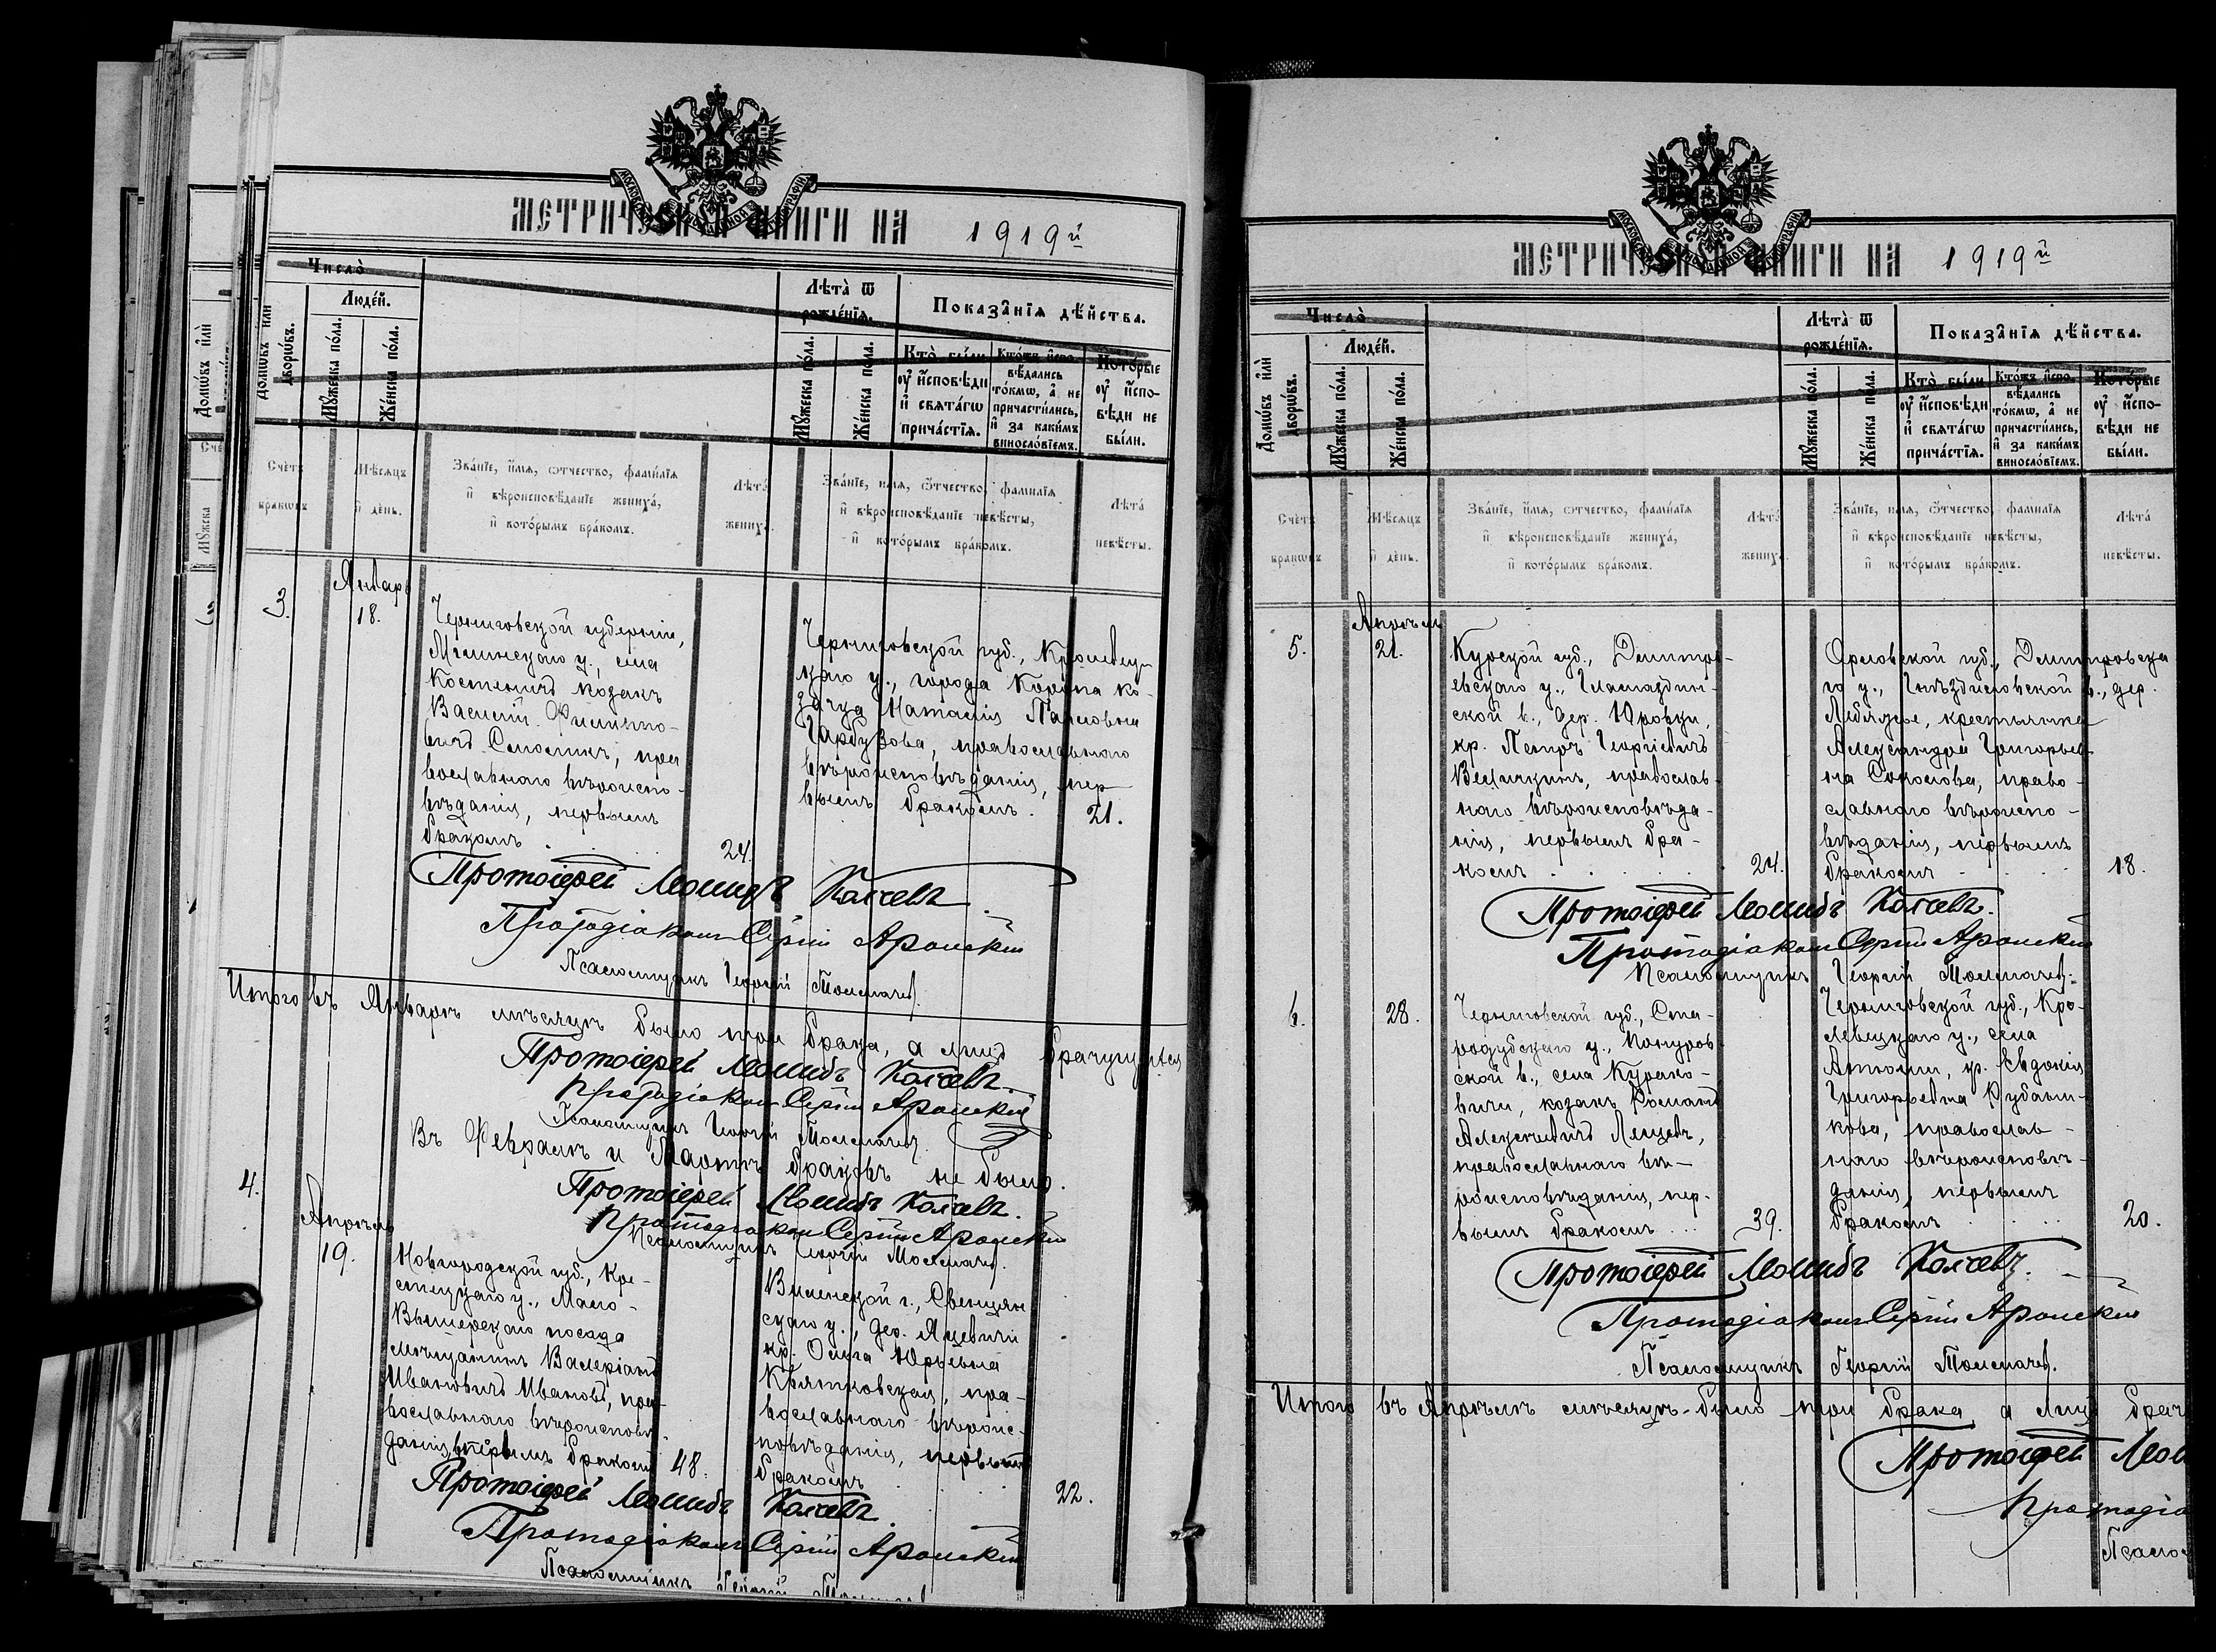 МЕТРИЧЕСКОЙ КНИГИ НА 1919й
Число̀
Людéй.
Домѡвъ или дворѡвъ.
Мꙋжеска пóла.
Жéнска пóла.
Лѣта̀ ѿ рождéнїѧ.
Мꙋжеска пóла.
Жéнска пóла.
Показáнїѧ дѣ́йства.
Кто̀ были ᲂу҆ и҆сповѣди и҆ свѧтáгѡ причáстїѧ.
Ктóжъ и҆спо-
вѣдались
тóкмѡ, а҆ не
причастились,
и҆ за какимъ
винослóвїемъ.
Котóрые
ᲂу҆ и҆спо-
вѣди не
были.
Счéтъ браковъ
Мѣсѧцъ и҆ дéнь.
Звáнїе, и҆мѧ, ѻтчество, фамилїѧ
и҆ вѣроисповѣданїе женихá,
и҆ котóрымъ брáкомъ.
Лѣтá женихá.
Звáнїе, имѧ, ѻтчество, фамилїѧ
и҆ вѣроисповѣданїе невѣсты,
и҆ котóрымъ брáкомъ.
Лѣтá невѣсты.
3.
Январь
18.
Черниговской губернiи,
Мглинскаго у., села
Костеничъ козакъ
Василiй Филиппо-
вичъ
пра
вославнаго вѣроиспо-
вѣданiя, первымъ
бракомъ
24.
Черниговской губ., Кролевец-
каго у., города Коропа ко-
зачка Наталiя Павловна
Гарбузова, православнаго
вѣроисповѣданiя, пер
вымъ бракомъ.
21.
Протоiерей Леонидъ
Протодiаконъ Сергiй
Псаломщикъ Георгiй Толмачевъ.
Итого въ Январѣ мѣсяцѣ было три брака, а лицъ брачущихся
Протоiерей Леонидъ
Протодiаконъ Сергiй
Псаломщикъ Георгiй Толмачевъ
Въ Февралѣ и Мартѣ браковъ не было.
Протоiерей Леонидъ
Протодiаконъ Сергiй
Псаломщикъ Георгiй Толмачевъ.
4.
Апрѣль
19.
Новгородской губ., Кре-
стецкаго у., Мало-
Вишерскаго посада
мѣщанинъ Валерiанъ
Ивановичъ Ивановъ, пра-
вославнаго вѣроисповѣ-
данiя, бракомъ
48.
Виленской г., Свенцян
скаго у., дер. Яцевичи
кр. Ольга Юрьевна
пра-
вославнаго вѣроис-
повѣданiя, первымъ
бракомъ
22.
Протоiерей Леонидъ
Протодiаконъ Сергiй
Псаломщикъ Георгiй
МЕТРИЧЕСКОЙ КНИГИ НА 1919й
Число̀
Людéй.
Домѡвъ или дворѡвъ.
Мꙋжеска пóла.
Жéнска пóла.
Лѣта̀ ѿ рождéнїѧ.
Мꙋжеска пóла.
Жéнска пóла.
Показáнїѧ дѣ́йства.
Кто̀ были ᲂу҆ и҆сповѣди и҆ свѧтáгѡ причáстїѧ.
Ктóжъ и҆спо-
вѣдались
тóкмѡ, а҆ не
причастились,
и҆ за какимъ
винослóвїемъ.
Котóрые
ᲂу҆ и҆спо-
вѣди не
были.
Счéтъ браковъ
Мѣсѧцъ и҆ дéнь.
Звáнїе, и҆мѧ, ѻтчество, фамилїѧ
и҆ вѣроисповѣданїе женихá,
и҆ котóрымъ брáкомъ.
Лѣтá женихá.
Звáнїе, имѧ, ѻтчество, фамилїѧ
и҆ вѣроисповѣданїе невѣсты,
и҆ котóрымъ брáкомъ.
Лѣтá невѣсты.
5.
Апрѣль
21.
Курской губ., Дмитрi-
евскаго у.,
ской в., дер. Юровки,
кр. Петръ Георгiевичъ
Величкинъ, православ-
наго вѣроисповѣда-
нiя, первымъ бра-
комъ
24.
Орловской губ., Дмитровска
го у., в., дер.
Лебяжье, крестьянка
Александра Григорьев-
на Соколова, право-
славнаго вѣроиспо-
вѣданiя, первымъ
бракомъ
18.
Протоiерей Леонидъ
Протодiаконъ Сергiй
Псаломщикъ Георгiй Толмачевъ.
6.
28.
Черниговской губ., Ста-
родубскаго у., Понуров
ской в., села Курко-
вичи, козакъ Романъ
Алексѣевичъ
православнаго вѣ-
роисповѣданiя, пер-
вымъ бракомъ
39.
Черниговской губ., Кро-
левецкаго у., села
кр. Евдокiя
Григорьевна Рубаш-
кова, православ-
наго вѣроисповѣ-
данiя, первымъ
бракомъ
20.
Протоiерей Леонидъ
Протодiаконъ Сергiй
Псаломщикъ Георгiй Толмачевъ.
Итого въ Апрѣлѣ мѣсяцѣ было три брака а лицъ брач
Протоiерей Леон
Протодiа
Псалом